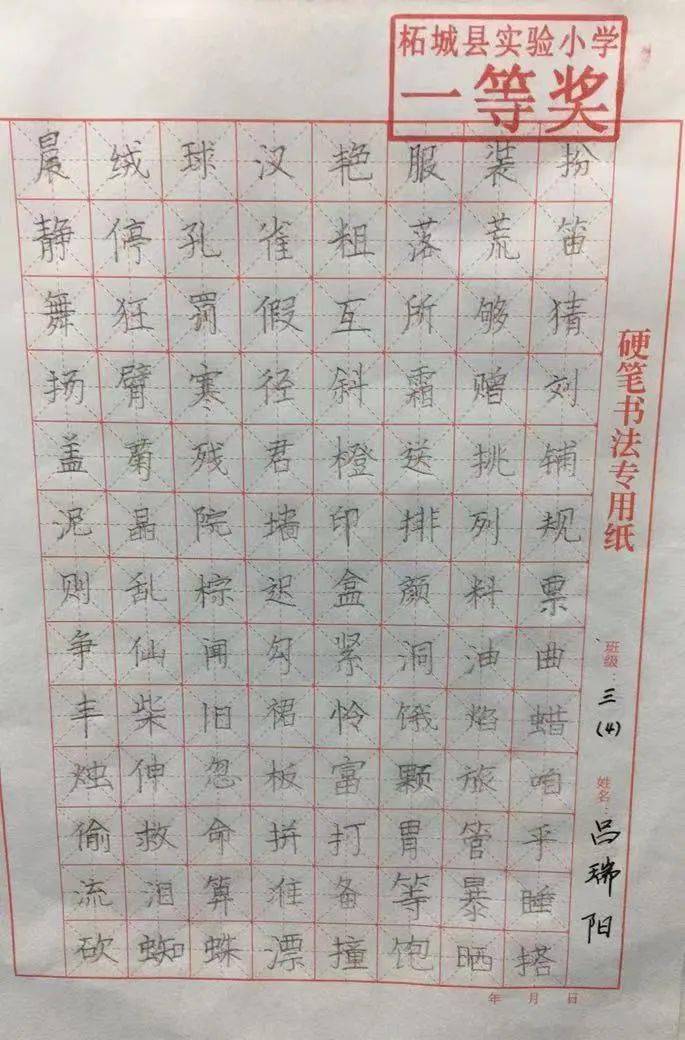 柘城县实验小学
一等奖
晨绒球汉艳服装扮
静停孔雀粗落荒笛
舞狂罚假互所够猜
扬臂寒径斜霜赠刘
盖菊残君橙送挑铺
泥晶院墙印排列规
则乱棕迟盒颜料票
争仙闻勾紧洞油曲
丰柴旧裙怜饿焰蜡
烛伸忽板富颗旅咱
偷救命拼打胃管乎
流泪算准备等暴睡
砍蜘蛛漂撞饱晒搭
硬笔书法专用纸
班级：三(4)
姓名：吕瑞阳
年 月 日